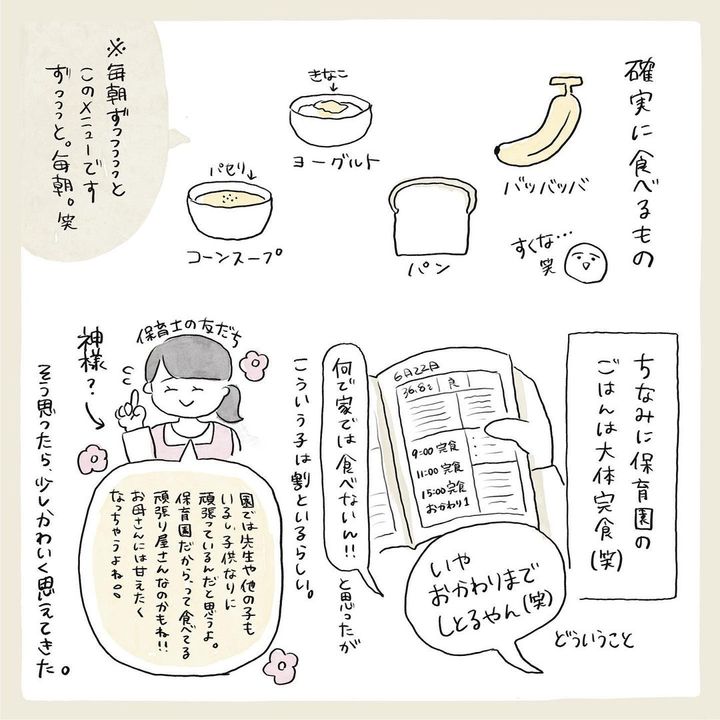 確実に食べるもの
バッバッバ
すくな…
笑
きなこ
ヨーグルト
パン
パセリ
コーンスープ
※毎朝ずっっっっっと
このメニューです
ずっっっと。毎朝。笑
ちなみに保育園の
ごはんは大体完食(笑)
どういうこと
6月22日
36.8℃
良
9:00 完食
11:00 完食
15:00 完食
おかわり1
いや
おかわりまで
しとるやん(笑)
何で家では食べないん!!
と思ったが
こういう子は割といるらしい。
保育士の友だち
神様?
園では先生や他の子も
いるし、子供なりに
頑張っているんだと思うよ。
保育園だから、って食べてる
頑張り屋さんなのかもね!!
お母さんには甘えたく
なっちゃうよね。。
そう思ったら、少しかわいく思えてきた。